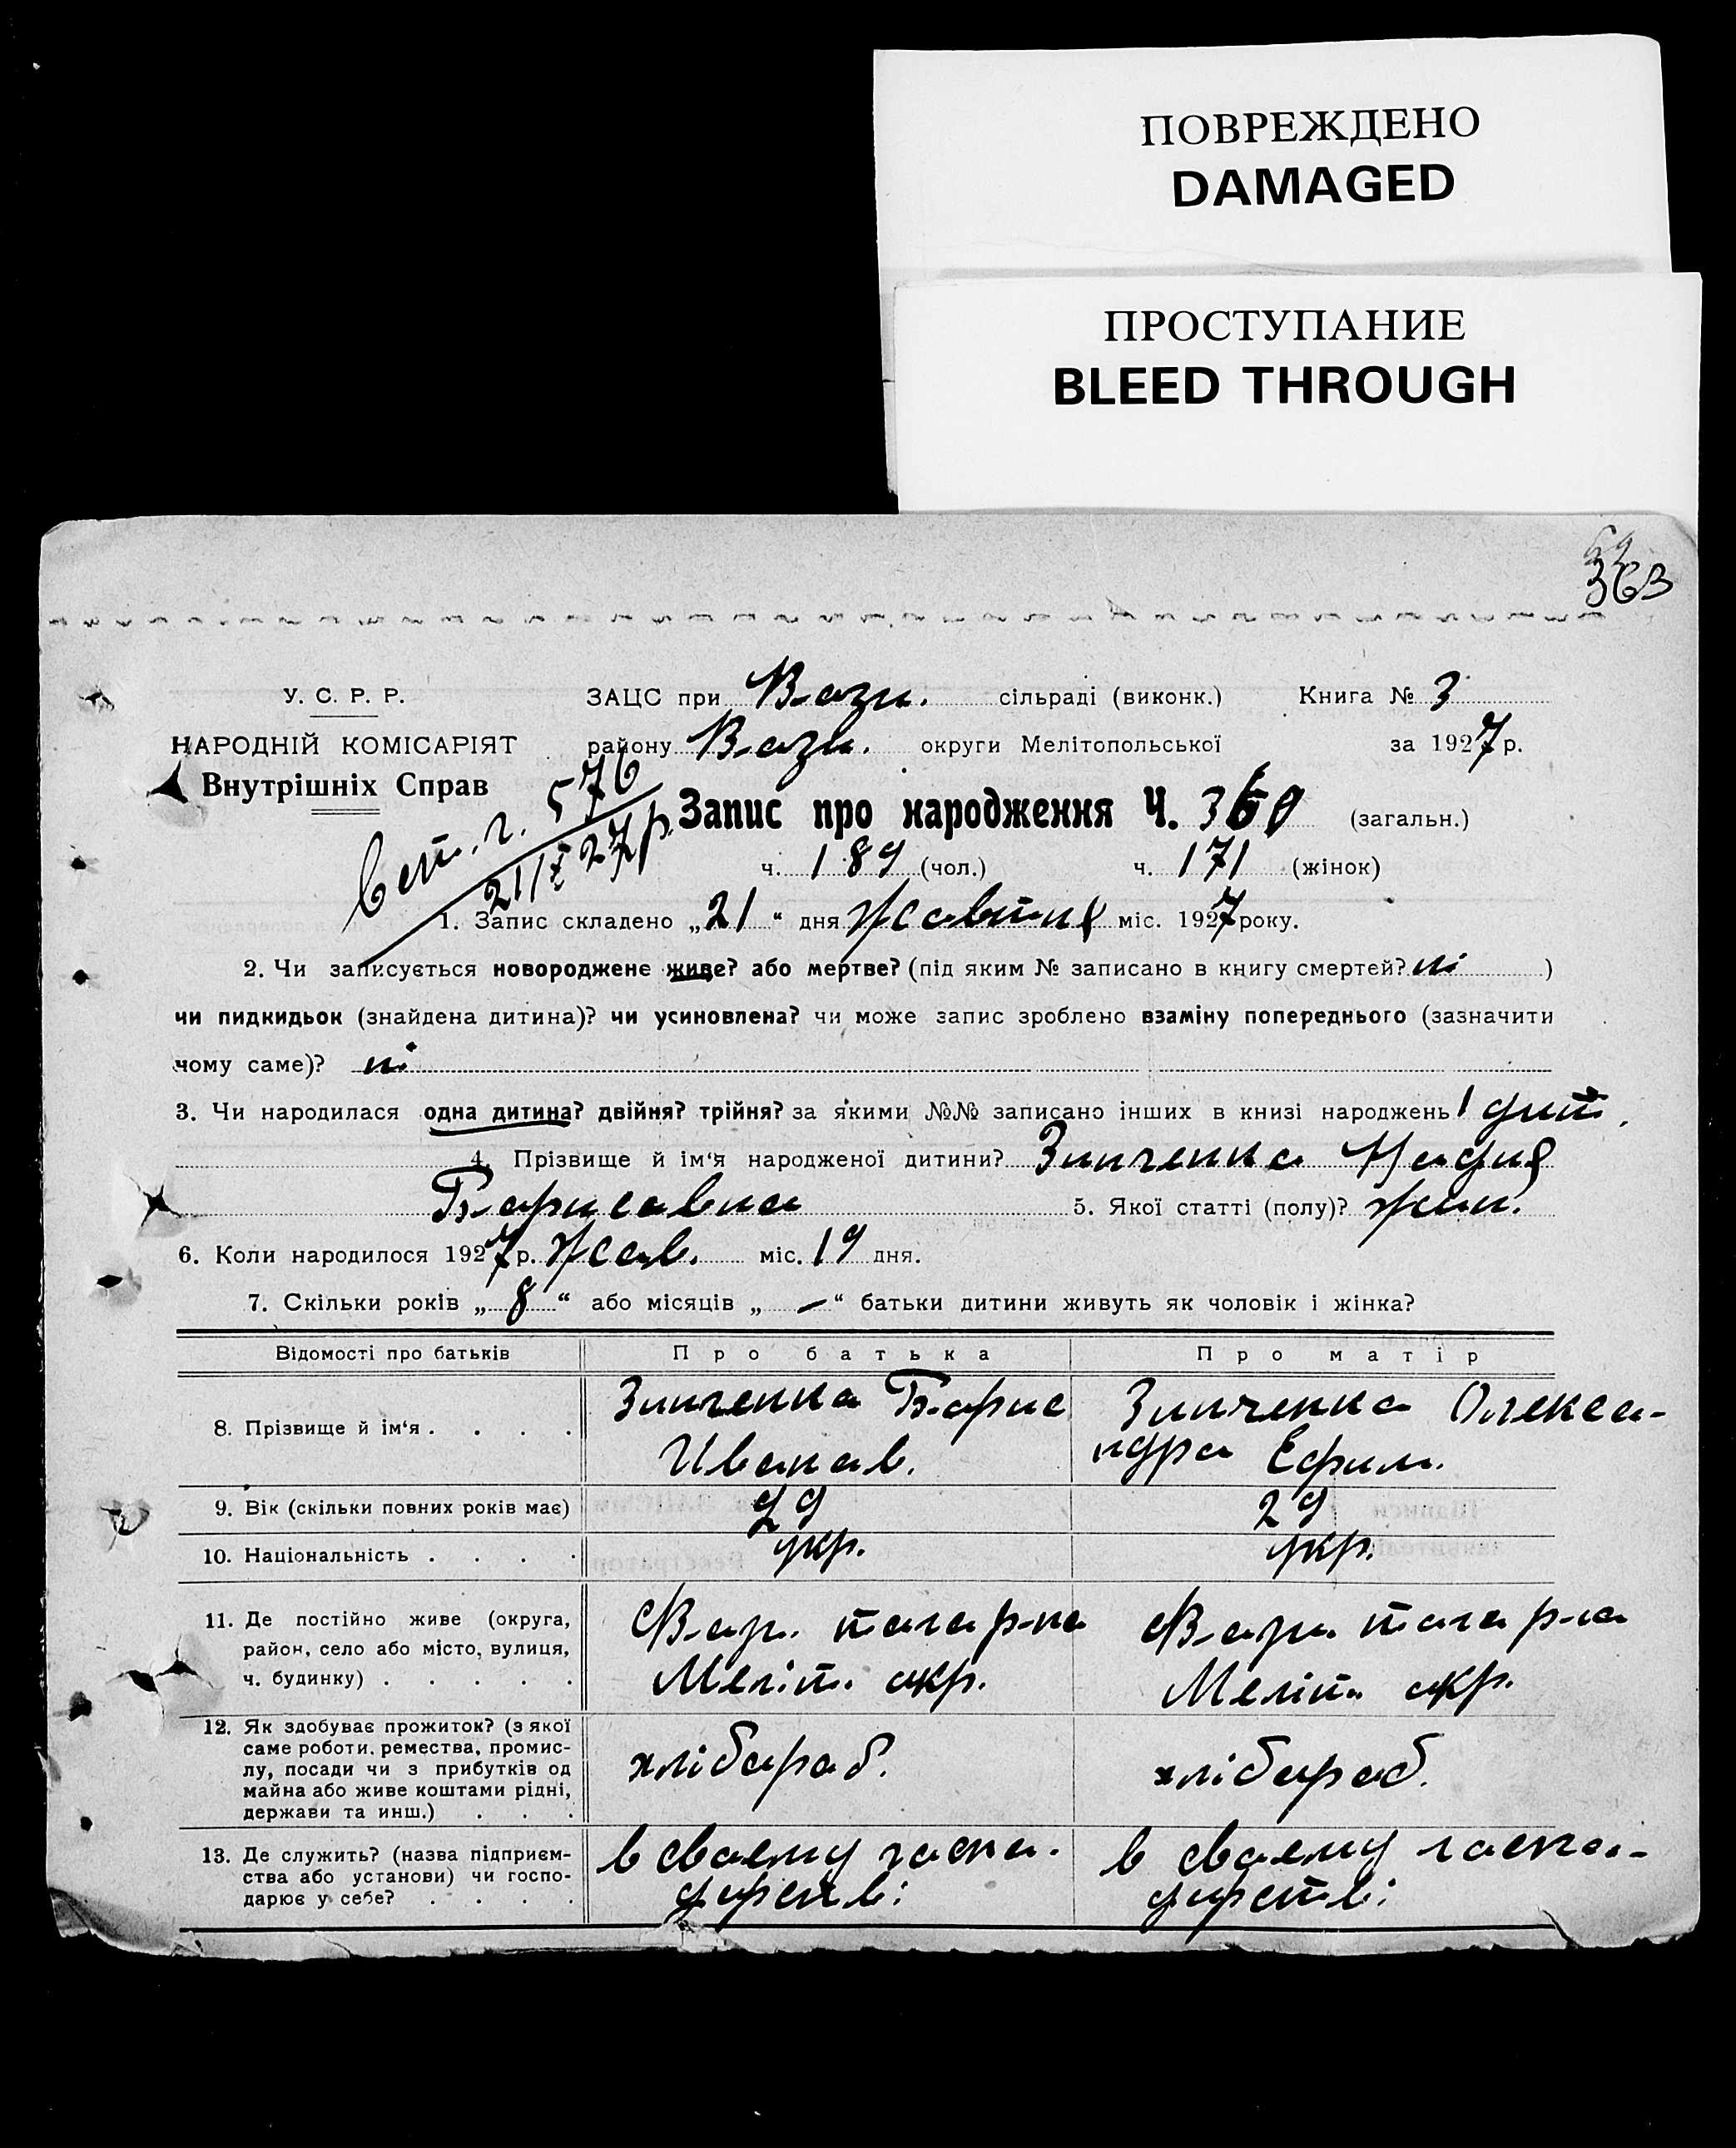 ПОВРЕЖДЕНО
DAMAGED
ПРОСТУПАНИЕ
BLEED THROUGH
363
У. С. Р. Р.
НАРОДНІЙ КОМІСАРІЯТ
Внутрішніх Справ
ЗАЦС при Возн. сільраді (виконк.) Книга № 3
району Возн. округи Мелітопольської за 1927 р.
576
21/X 27р
Запис про народження Ч. 360 (загальн.)
ч. 189 (чол.) ч. 171 (жінок)
1. Запис складено „21“ дня Жовтня міс. 1927 року.
2. Чи записується новороджене живе? або мертве? (під яким № записано в книгу смертей? ні )
чи пидкидьок (знайдена дитина)? чи усиновлена? чи може запис зроблено взаміну попереднього (зазначити
чому саме)? ні
3. Чи народилася одна дитина? двійня? трійня? за якими №№ записано інших в книзі народжень 1 дит.
4. Прізвище й ім‘я народженої дитини? Зинченко Надия
Борисовна 5. Якої статті (полу)? жин.
6. Коли народилося 1927 р. Жов. міс. 19 дня.
7. Скільки років „ 8 “ або місяців „ — “ батьки дитини живуть як чоловік і жінка?
Відомості про батьків Про батька Про матір
8. Прізвище й ім‘я . . . . Зинченко Борис Зинченко Олекса-
Иванов. ндра Ефим.
9. Вік (скільки повних років має) 29 29
10. Національність . . . . укр. укр.
11. Де постійно живе (округа, Возн. того р-на Возн. того р-на
район, село або місто, вулиця, Меліт. окр. Меліт. окр.
ч. будинку) . . . . .
12. Як здобуває прожиток? (з якої
саме роботи, ремества, промис-
лу, посади чи з прибутків од хлібороб. хлібороб.
майна або живе коштами рідні,
держави та инш.) . . .
13. Де служить? (назва підприєм- в своему госпо- в своему госпо-
ства або установи) чи госпо- дирстві дирстві
дарює у себе? . . . .